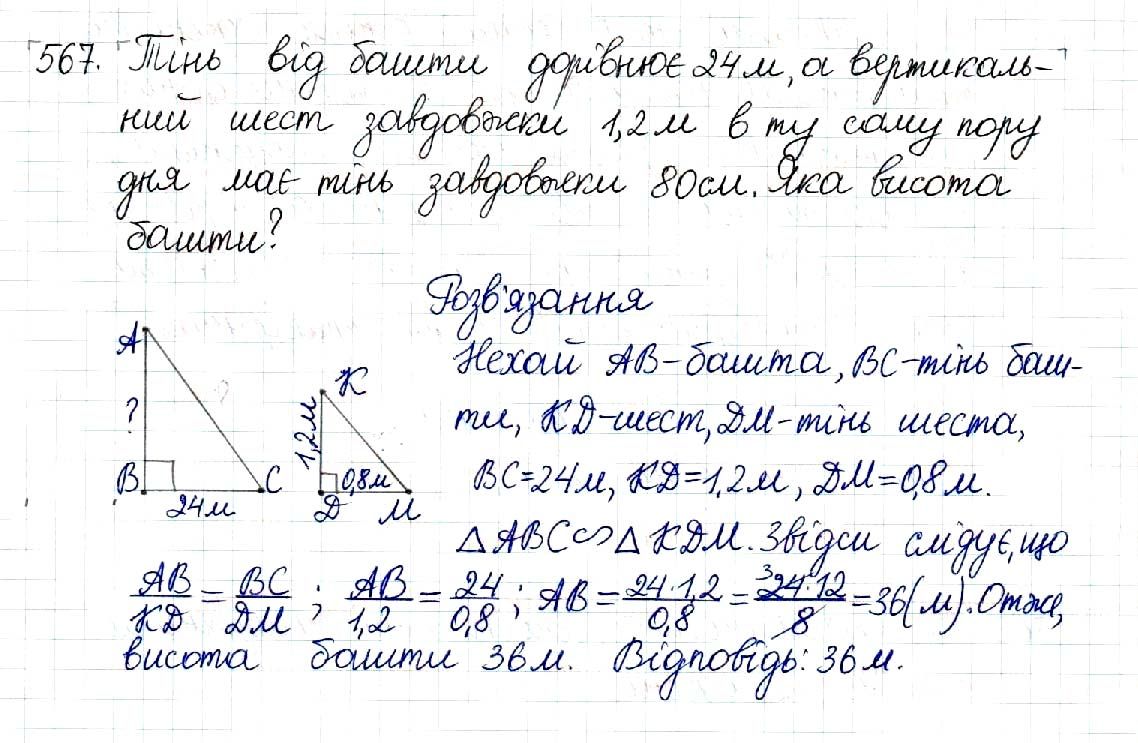 567. Тінь від башти дорівнює 24 м, а вертикаль-
ний шест завдовжки 1,2 м в ту саму пору
дня має тінь завдовжки 80 см. Яка висота
башти?
Розв'язання
A
?
B
24 м
C
K
1,2 м
0,8 м
D
M
Нехай AB - башта, BC - тінь баш-
ти, KD - шест, DM - тінь шеста,
BC = 24 м, KD = 1,2 м, DM = 0,8 м.
△ABC ∽ △KDM. Звідси слідує, що
AB/KD = BC/DM ; AB/1,2 = 24/0,8 ; AB = 24·1,2/0,8 = ³24·12/8 = 36 (м). Отже,
висота башти 36 м. Відповідь: 36 м.